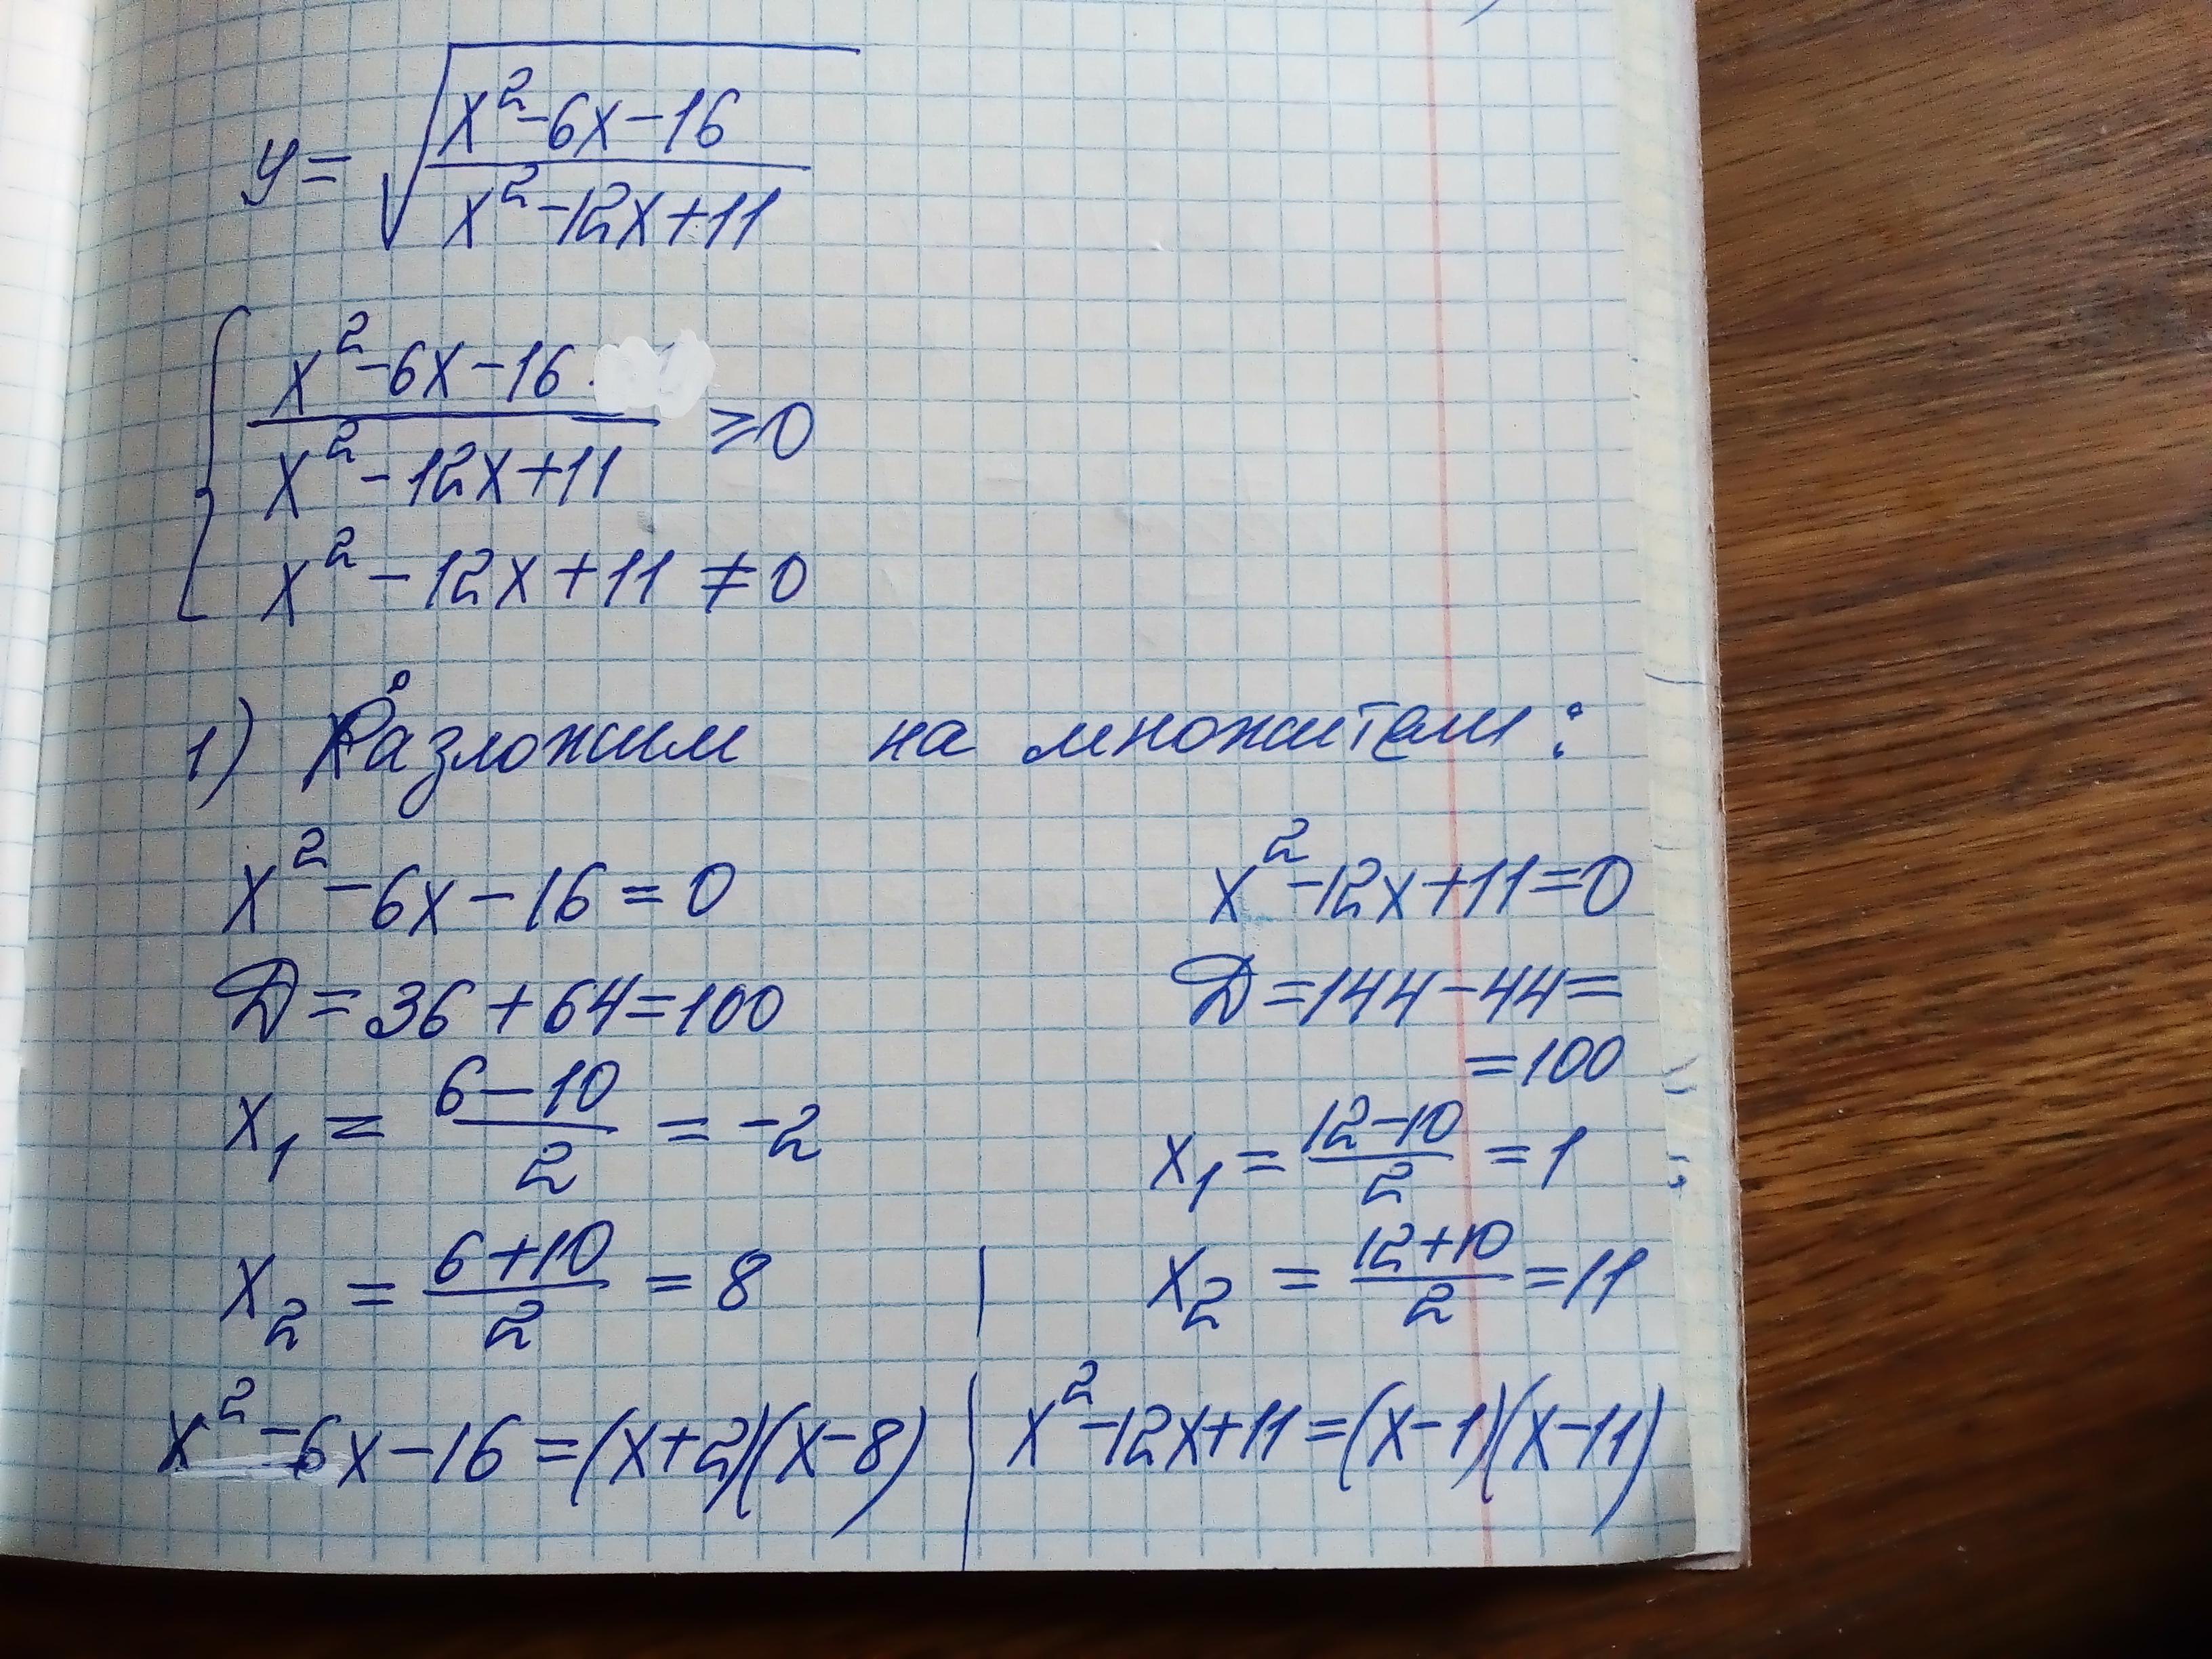 y = √(x² - 6x - 16 / x² - 12x + 11)
{ x² - 6x - 16 / x² - 12x + 11 ≥ 0
x² - 12x + 11 ≠ 0
1) Разложим на множители:
x² - 6x - 16 = 0
D = 36 + 64 = 100
x₁ = (6 - 10)/2 = -2
x₂ = (6 + 10)/2 = 8
x² - 6x - 16 = (x+2)(x-8)
x² - 12x + 11 = 0
D = 144 - 44 =
= 100
x₁ = (12 - 10)/2 = 1
x₂ = (12 + 10)/2 = 11
x² - 12x + 11 = (x-1)(x-11)